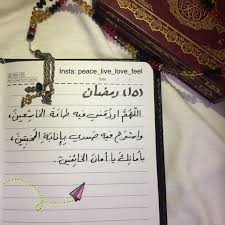 Insta: peace_live_love_feel
(١٥) رمضان
اللّهُمَّ ارزقني فيه طاعة الخاشعين،
واشرح فيه صدري بإنابة المخبتين،
بأمانك يا أمان الخائفين.